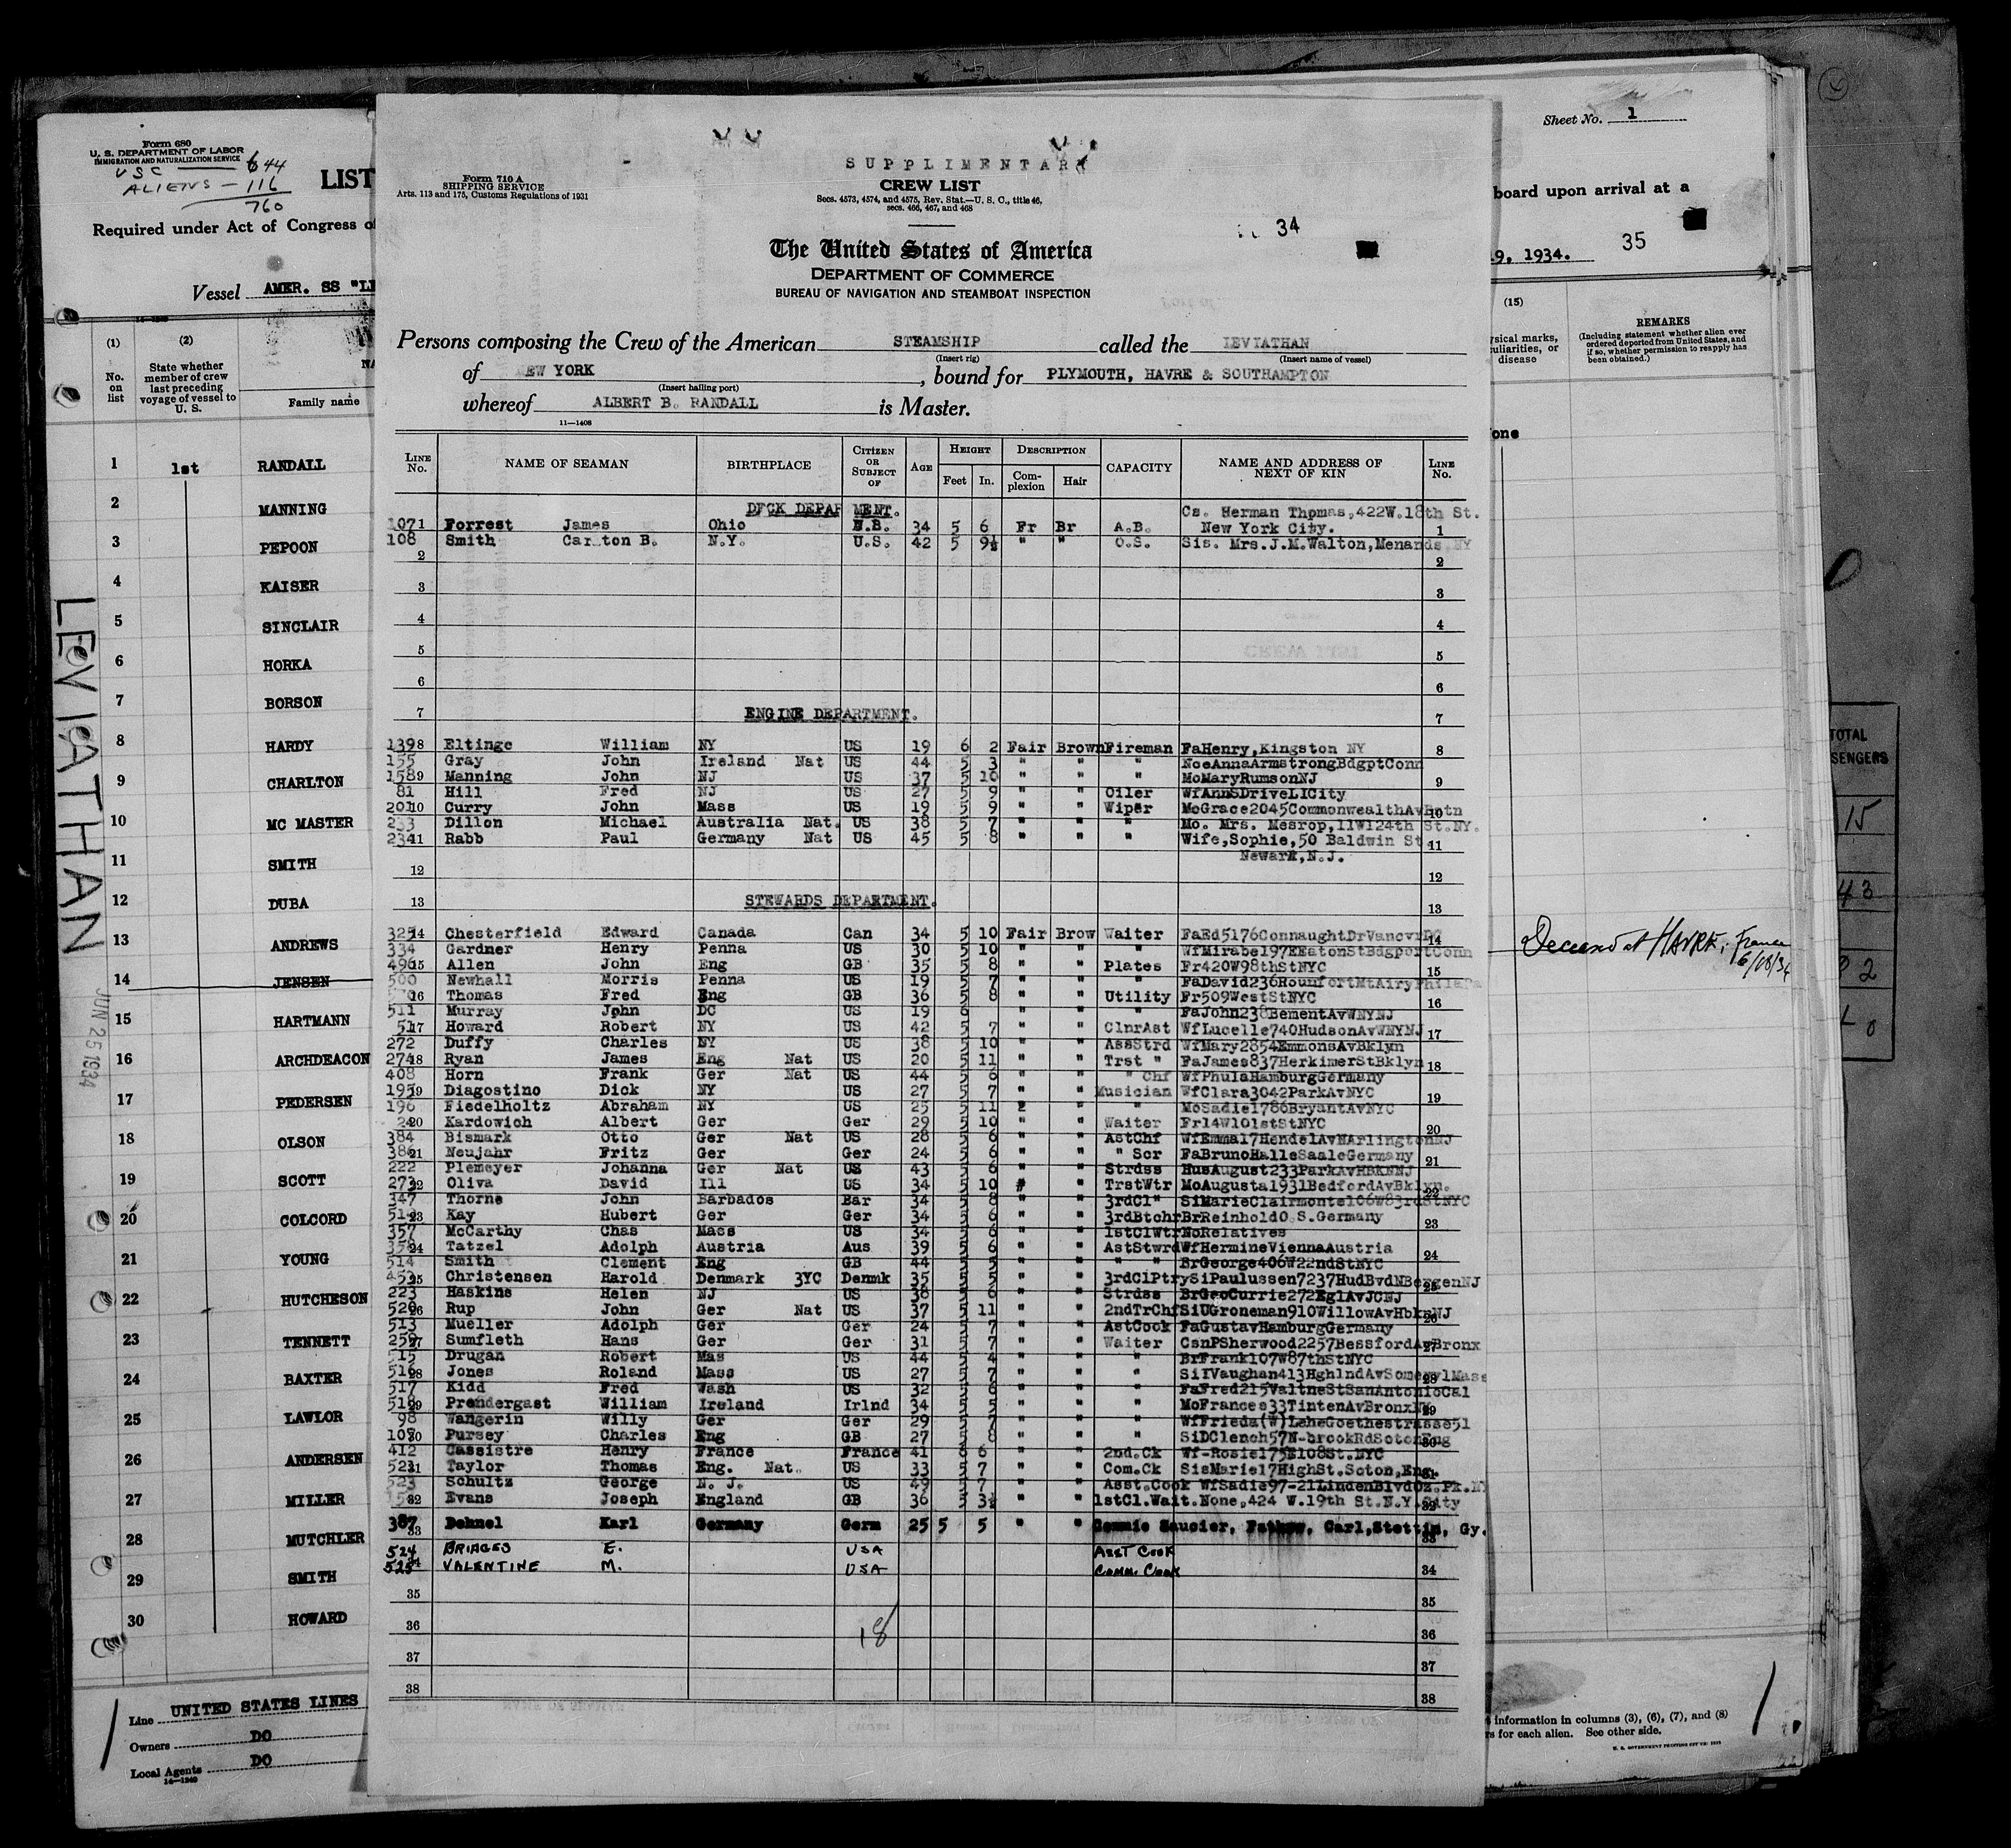 Form 680
U. S. DEPARTMENT OF LABOR
IMMIGRATION AND NATURALIZATION SERVICE
USC — 644
ALIENS — 116
760
LIST
Required under Act of Congress of
Vessel AMER. SS "LE
(1) (2)
No. on list
State whether member of crew last preceding voyage of vessel to U. S.
NA
Family name
1 1st RANDALL
2 MANNING
3 PEPOON
4 KAISER
5 SINCLAIR
6 HORKA
7 BORSON
8 HARDY
9 CHARLTON
10 MC MASTER
11 SMITH
12 DUBA
13 ANDREWS
14 JENSEN
15 HARTMANN
16 ARCHDEACON
17 PEDERSEN
18 OLSON
19 SCOTT
20 COLCORD
21 YOUNG
22 HUTCHESON
23 TENNETT
24 BAXTER
25 LAWLOR
26 ANDERSEN
27 MILLER
28 MUTCHLER
29 SMITH
30 HOWARD
LEVIATHAN
JUN 25 1934
Line UNITED STATES LINES
Owners DO
Local Agents DO
14—1240
SUPPLIMENTARY
Form 710 A
SHIPPING SERVICE
Arts. 113 and 175, Customs Regulations of 1931
CREW LIST
Secs. 4573, 4574, and 4575, Rev. Stat.—U. S. C., title 46,
secs. 466, 467, and 468
34
The United States of America
DEPARTMENT OF COMMERCE
BUREAU OF NAVIGATION AND STEAMBOAT INSPECTION
Persons composing the Crew of the American STEAMSHIP called the LEVIATHAN
(Insert rig) (Insert name of vessel)
of EW YORK, bound for PLYMOUTH, HAVRE & SOUTHAMPTON
(Insert hailing port)
whereof ALBERT B. RANDALL is Master.
11—1408
LINE No. NAME OF SEAMAN BIRTHPLACE CITIZEN OR SUBJECT OF AGE HEIGHT Feet In. DESCRIPTION Complexion Hair CAPACITY NAME AND ADDRESS OF NEXT OF KIN LINE No.
DECK DEPARTMENT.
Cs. Herman Thomas,422W.18th St.
107 1 Forrest James Ohio N.B. 34 5 6 Fr Br A.B. New York City. 1
108 Smith Carlton B. N.Y. U.S. 42 5 9½ " " O.S. Sis. Mrs.J.M.Walton,Menands NY
2 2
3 3
4 4
5 5
6 6
7 ENGINE DEPARTMENT. 7
139 8 Eltinge William NY US 19 6 2 Fair Brown Fireman FaHenry,Kingston NY 8
155 Gray John Ireland Nat US 44 5 3 " " " NceAnnaArmstrongBdgptConn
158 9 Manning John NJ US 37 5 10 " " " MoMaryRumsonNJ 9
81 Hill Fred NJ US 27 5 9 " " Oiler WfAnnSDriveLICity
201 10 Curry John Mass US 19 5 9 " " Wiper MoGrace2045CommonwealthAvBstn 10
233 Dillon Michael Australia Nat. US 38 5 7 " " " Mo. Mrs. Mesrop,11W124th St.NY.
234 11 Rabb Paul Germany Nat US 45 5 8 " " " Wife,Sophie,50 Baldwin St 11
Newark,N.J.
12 12
13 STEWARDS DEPARTMENT. 13
325 14 Chesterfield Edward Canada Can 34 5 10 Fair Brow Waiter FaEd5176ConnaughtDrVancvr 14
334 Gardner Henry Penna US 30 5 10 " " " WfMirabel97EEatonStBdgportConn
496 15 Allen John Eng GB 35 5 8 " " Plates Fr420W98thStNYC 15
500 Newhall Morris Penna US 19 5 7 " " " FaDavid236RounfortMtAiryPhilaPa
16 Thomas Fred Eng GB 36 5 8 " " Utility Fr509WestStNYC 16
511 Murray John DC US 19 6 " " " FaJohn238BementAvWNYNJ
17 Howard Robert NY US 42 5 7 " " ClnrAst WfLucelle740HudsonAvWNYNJ 17
272 Duffy Charles NY US 38 5 10 " " AssStrd WfMary2854EmmonsAvBklyn
274 18 Ryan James Eng Nat US 20 5 11 " " Trst " FaJames837HerkimerStBklyn 18
408 Horn Frank Ger Nat US 44 5 6 " " " Chf WfPhulaHamburgGermany
195 19 Diagostino Dick NY US 27 5 7 " " Musician WfClara3042ParkAvNYC 19
196 Fiedelholtz Abraham NY US 25 5 11 " " " MoSadie1786BryantAvNYC
20 Kardowich Albert Ger Ger 29 5 10 " " Waiter Fr14W101stStNYC 20
384 Bismark Otto Ger Nat US 28 5 6 " " AstChf WfEmma17HendelAvNArlingtonNJ
386 21 Neujahr Fritz Ger Ger 24 5 6 " " " Scr FaBrunoHalleSaaleGermany 21
222 Plemeyer Johanna Ger Nat US 43 5 6 " " Strdss HusAugust233ParkAvHBKNNJ
273 22 Oliva David Ill US 34 5 10 " " TrstWtr MoAugusta1931BedfordAvBklyn. 22
347 Thorne John Barbados Bar 34 5 8 " " 3rdCl" SiMarieClairmonte106W83rdStNYC
512 23 Kay Hubert Ger Ger 34 5 6 " " 3rdBtchr BrReinholdO.S.Germany 23
357 McCarthy Chas Mass US 34 5 6 " " 1stClWtr NoRelatives
358 24 Tatzel Adolph Austria Aus 39 5 6 " " AstStwrd WfHermineViennaAustria 24
514 Smith Clement Eng GB 44 5 5 " " " " BrGeorge406W22ndStNYC
453 25 Christensen Harold Denmark 3YC Denmk 35 5 5 " " 3rdClPtry SiPaulussen7237HudBvdNBergenNJ 25
223 Haskins Helen NJ US 38 5 6 " " Strdss BrGeoCurrie272EglAvJCNJ
520 26 Rup John Ger Nat US 37 5 11 " " 2ndTrChf SiUGroneman910WillowAvHbknNJ 26
513 Mueller Adolph Ger Ger 24 5 7 " " AstCook FaGustavHamburgGermany
259 27 Sumfleth Hans Ger Ger 31 5 7 " " Waiter CsnPSherwood2257BessfordAvBronx 27
515 Drugan Robert Mas US 44 5 4 " " " BrFrank107W87thStNYC
516 28 Jones Roland Mass US 27 5 7 " " " SiIVaughan413HghlndAvSomervlMass 28
517 Kidd Fred Wash US 32 5 6 " " " FaFred215ValtneStSanAntonioCal
518 29 Prendergast William Ireland Irlnd 34 5 5 " " " MoFrances33TintenAvBronxNY 29
98 Wangerin Willy Ger Ger 29 5 7 " " " WfFrieda(W)LeheGoethestrasse51
107 30 Pursey Charles Eng GB 27 5 8 " " " SiDClench57N-brookRdSotonEng 30
412 Cassistre Henry France France 41 6 " " 2nd.Ck Wf-Rosie175E108St.NYC
521 31 Taylor Thomas Eng. Nat. US 33 5 7 " " Com.Ck SisMarie17HighSt.Soton,Eng. 31
523 Schultz George N. J. US 49 5 7 " " Asst.Cook WfSadie97-21LindenBlvdOz.Pk.NY
32 Evans Joseph England GB 36 5 3½ " " 1stCl.Wait.None,424 W.19th St.N.Y.City 32
387 33 Dehnel Karl Germany Germ 25 5 5 " " Commie Saucier, Father, Carl,Stettin, Gy. 33
524 BRIDGES E. USA ASST COOK
525 34 VALENTINE M. USA COMM. COOK 34
35 35
36 18 36
37 37
38 38
Sheet No. 1
board upon arrival at a
19, 1934. 35
(15)
ysical marks,
uliarities, or
disease
REMARKS
(Including statement whether alien ever
ordered deported from United States, and
if so, whether permission to reapply has
been obtained.)
one
Deceased at HAVRE, France
6/18/34
TOTAL
SENGERS
15
43
32
t information in columns (3), (6), (7), and (8)
rs for each alien. See other side.